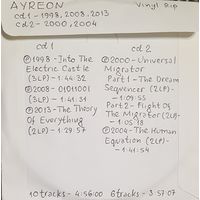 AYREON
Vinyl Rip
cd1-1998, 2008, 2013
cd2-2000, 2004
cd 1
Ⓟ1998-Into The
Electric Castle
(3LP)-1:44:32
Ⓟ2008-01011001
(3LP)-1:41:31
Ⓟ2013-The Theory
Of Everything
(2LP)-1:29:57
cd 2
Ⓟ2000-Universal
Migrator
Part1-The Dream
Sequencer (2LP)-
-1:09:53
Part2-Flight Of
The Migrator (2LP)-
-1:05:18
Ⓟ2004-The Human
Equation (2LP)-
-1:41:54
10tracks-4:56:00
6tracks-3:57:07